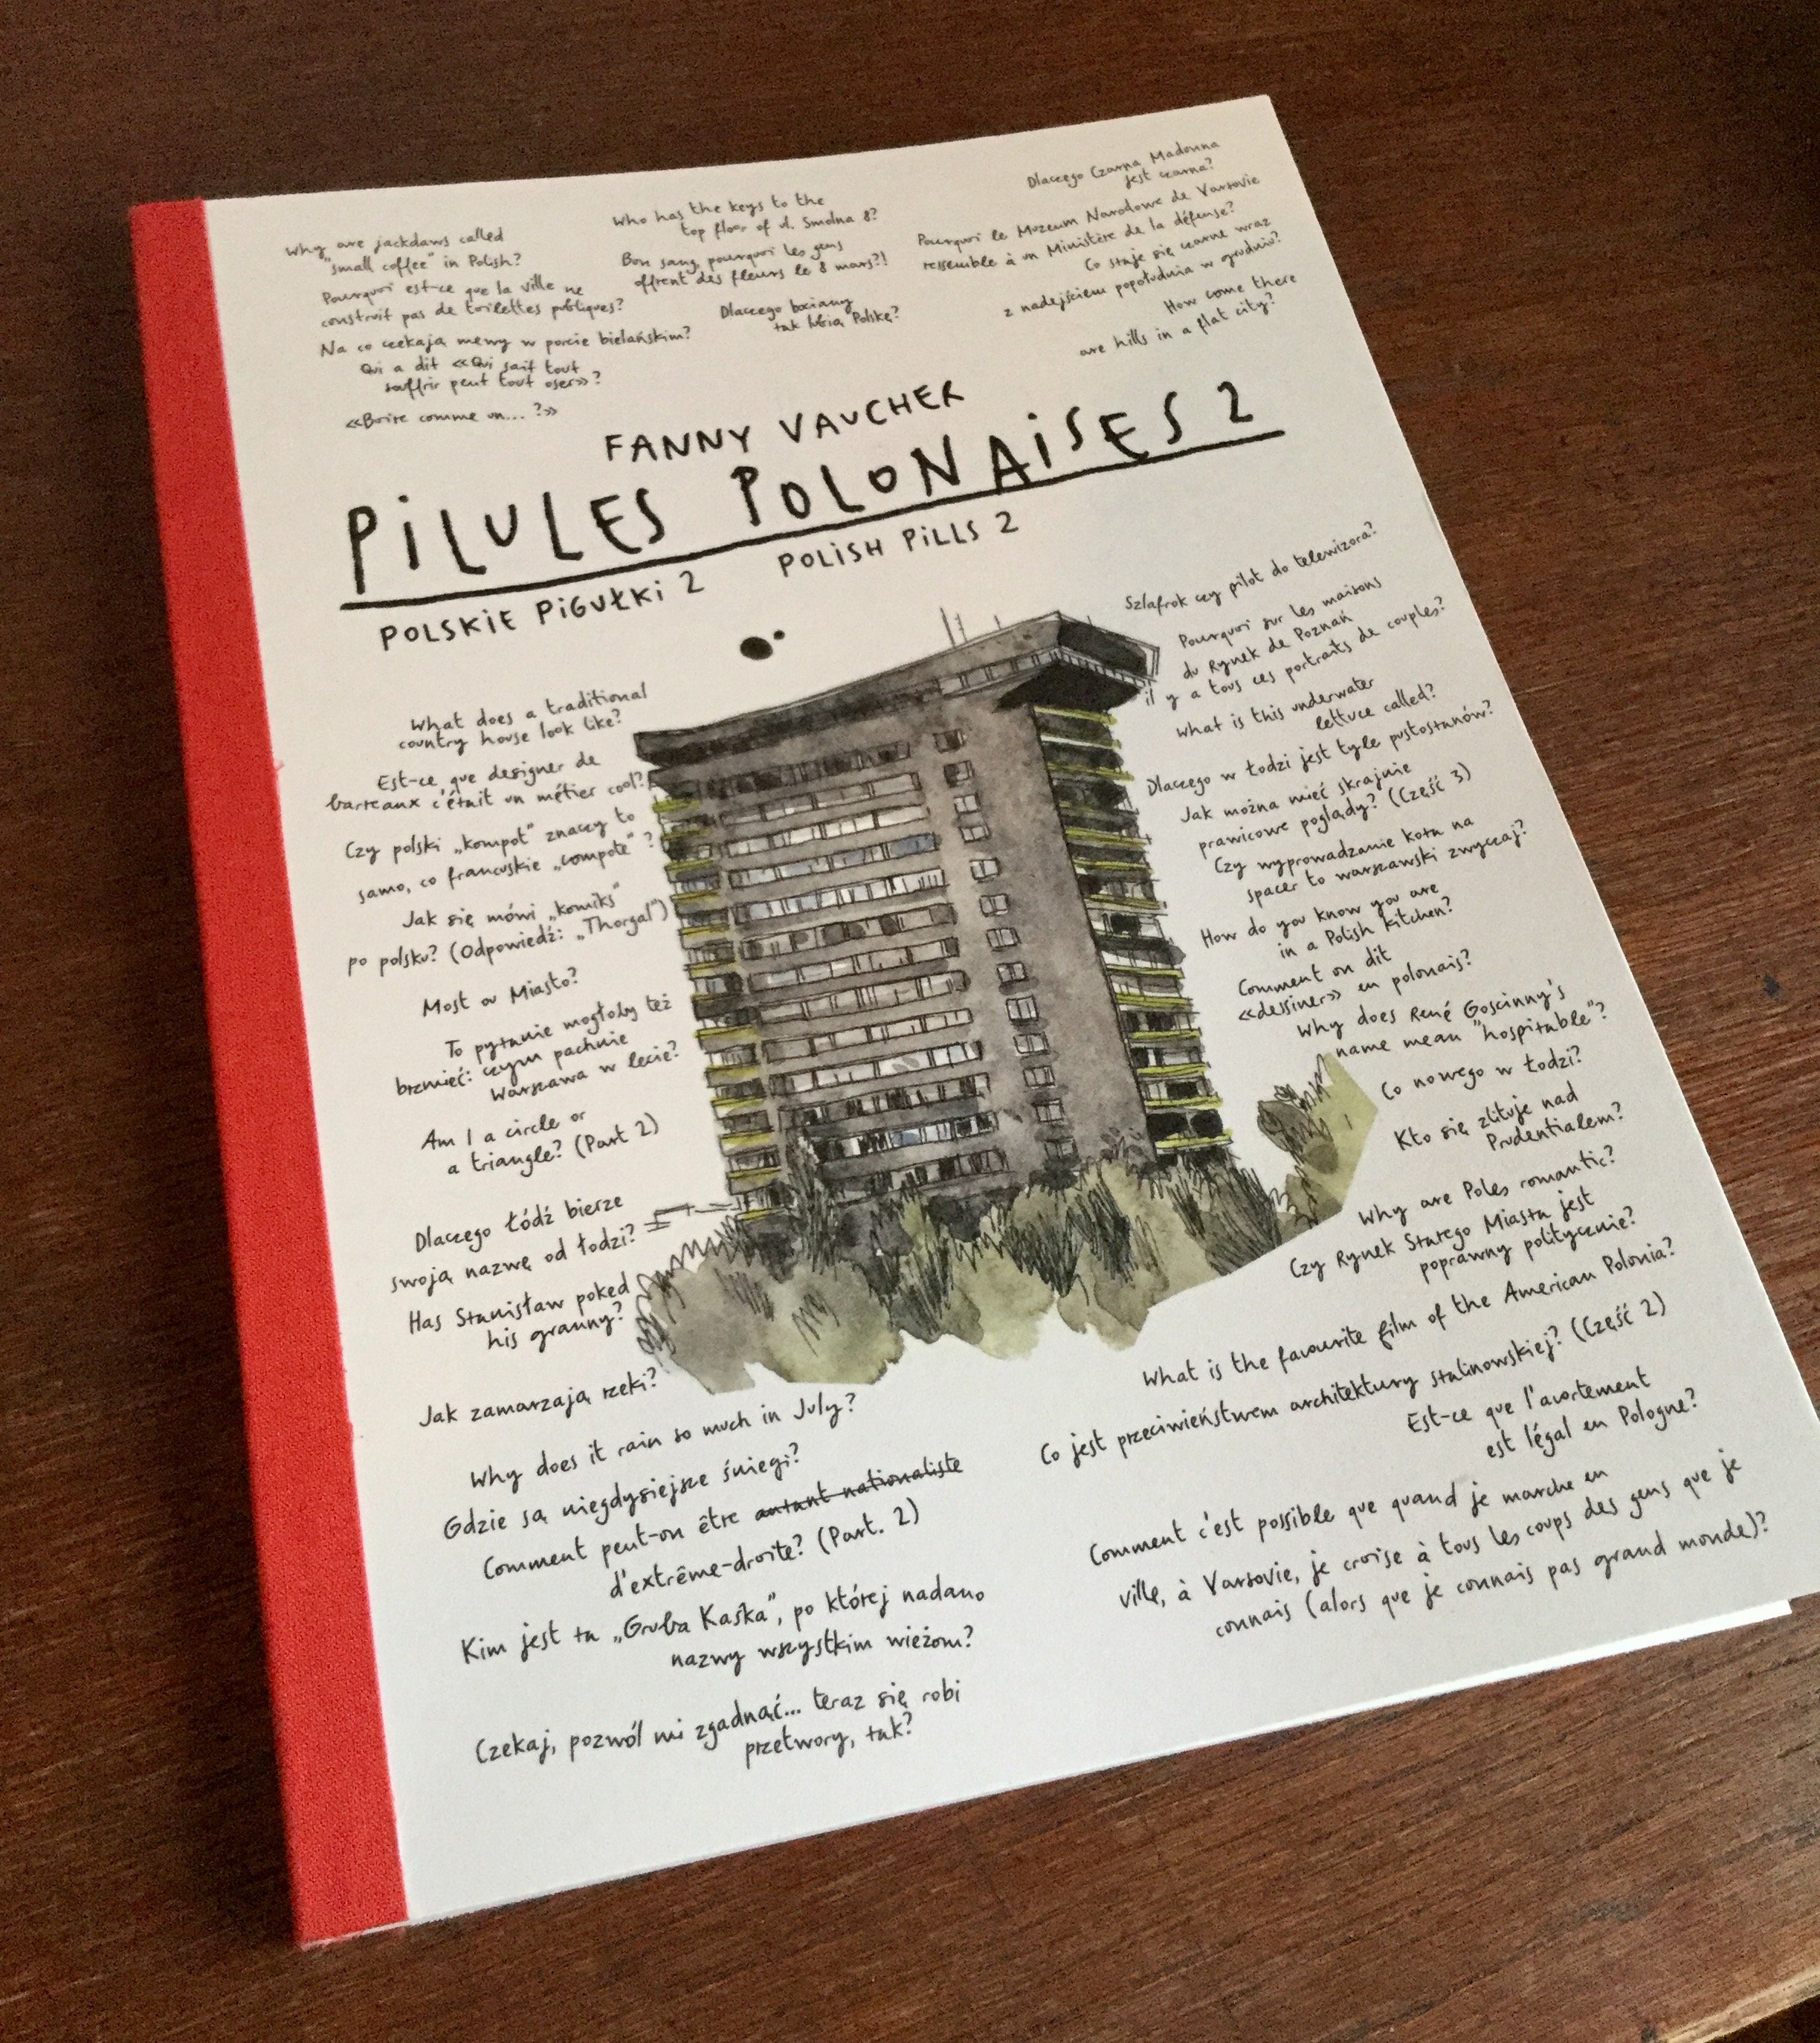 Why are jackdaws called
"small coffee" in Polish?
Pourquoi est-ce que la ville ne
construit pas de toilettes publiques?
Na co czekają mewy w porcie bielańskim?
Qui a dit «Qui sait tout
souffrir peut tout oser»?
«Boire comme un... ?»
Who has the keys to the
top floor of ul. Smolna 8?
Bon sang, pourquoi les gens
offrent des fleurs le 8 mars?!
Dlaczego bociany
tak lubią Polskę?
Dlaczego Czarna Madonna
jest czarna?
Pourquoi le Muzeum Narodowe de Varsovie
ressemble à un Ministère de la défense?
Co staje się czarne wraz
z nadejściem popołudnia w grudniu?
How come there
are hills in a flat city?
FANNY VAUCHER
PiLULES POLONAiSES 2
POLSKiE PiGUŁKi 2
POLiSH PiLLS 2
What does a traditional
country house look like?
Est-ce que designer de
barreaux c'était un métier cool?
Czy polski „kompot" znaczy to
samo, co francuskie „compote"?
Jak się mówi „komiks"
po polsku? (Odpowiedź: „Thorgal")
Most ou Miasto?
To pytanie mogłoby też
brzmieć: czym pachnie
Warszawa w lecie?
Am I a circle or
a triangle? (Part 2)
Dlaczego Łódź bierze
swoją nazwę od łodzi?
Has Stanisław poked
his granny?
Jak zamarzają rzeki?
Why does it rain so much in July?
Gdzie są niegdysiejsze śniegi?
Comment peut-on être autant nationaliste
d'extrême-droite? (Part. 2)
Kim jest ta „Gruba Kaśka", po której nadano
nazwy wszystkim wieżom?
Czekaj, pozwól mi zgadnąć... teraz się robi
przetwory, tak?
Szlafrok czy pilot do telewizora?
Pourquoi sur les maisons
du Rynek de Poznań
il y a tous ces portraits de couples?
What is this underwater
lettuce called?
Dlaczego w Łodzi jest tyle pustostanów?
Jak można mieć skrajnie
prawicowe poglądy? (Część 3)
Czy wyprowadzanie kota na
spacer to warszawski zwyczaj?
How do you know you are
in a Polish kitchen?
Comment on dit
«dessiner» en polonais?
Why does René Goscinny's
name mean "hospitable"?
Co nowego w Łodzi?
Kto się zlituje nad
Prudentialem?
Why are Poles romantic?
Czy Rynek Starego Miasta jest
poprawny politycznie?
What is the favourite film of the American Polonia?
Co jest przeciwieństwem architektury stalinowskiej? (Część 2)
Est-ce que l'avortement
est légal en Pologne?
Comment c'est possible que quand je marche en
ville, à Varsovie, je croise à tous les coups des gens que je
connais (alors que je connais pas grand monde)?